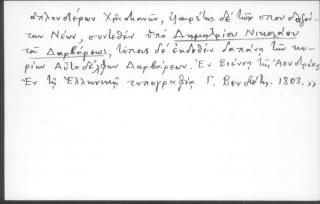 ἁπλουστέρων Χριστιανῶν, ἐξαιρέτως δέ τῶν σπουδαζόν-
των Νέων, συντεθέν ὑπό Δημητρίου Νικολάου
τοῦ Δαρβάρεως, τύποις δέ ἐκδοθέν δαπάνῃ τῶν κυ-
ρίων Αὐταδέλφων Δαρβάρεων. Ἐν Βιέννῃ τῆς Ἀουστρίας
Ἐν τῇ Ἑλληνικῇ τυπογραφίᾳ Γ. Βενδότη. 1803.»